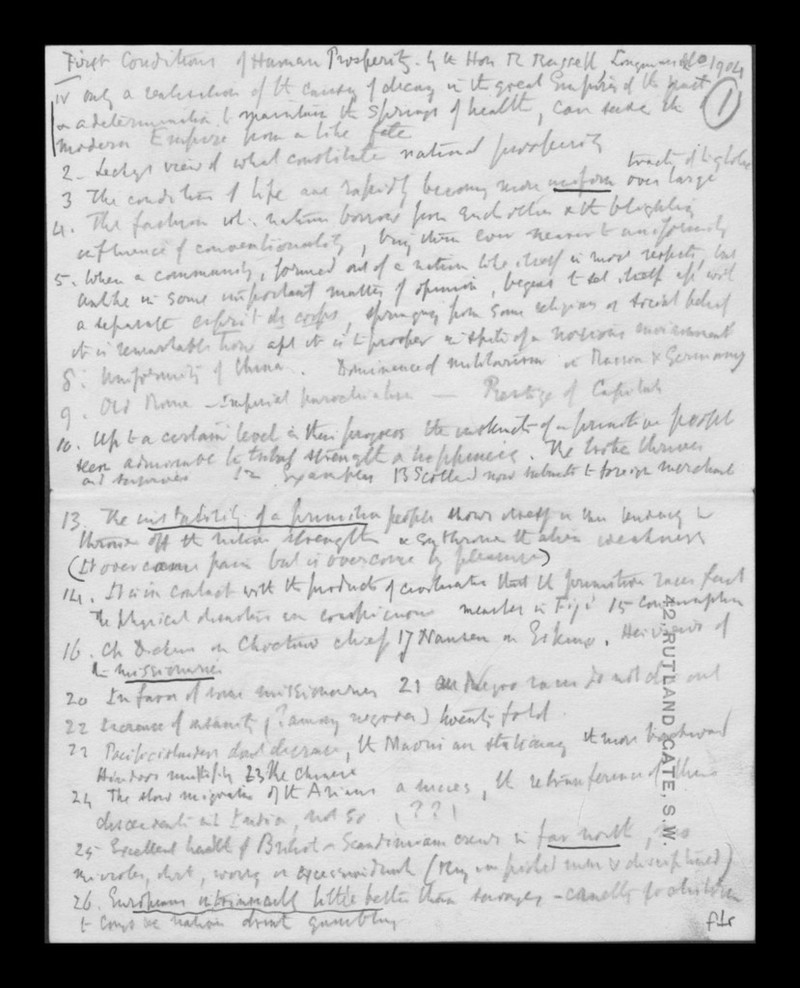 First Conditions of Human Prosperity. by the Hon R Russell Longmans 1904
①
IV only a realisation of the causes of decay in the great Empires of the past
& a determination to maintain the springs of health, can save the
modern Empire from a like fate
2 - Leckys view of what constitutes national prosperity
3 The conditions of life are rapidly becoming more uniform over large tracts of the globe
4. The fashion wh. nations borrow from each other & the blighting
influence of conventionality, bring them ever nearer to uniformity
5. When a community, formed out of a nation like itself in most respects, but
unlike in some important matter of opinion, begins to set itself up with
a separate esprit de corps, springing from some religious or social belief
it is remarkable how apt it is to prosper in spite of
8. Uniformity of China. Dominance of militarism in Russia & Germany
9. Old Rome - Imperial parochialism - Prestige of Capitals
10. Up to a certain level in their progress the instincts of a primitive people
seem admirable for tribal strength & happiness. The tribe thrives
and survives 12 Examples 13
13. The instability of a primitive people shows itself in their tendency to
throw off the native strength & the alien weakness
(It overcomes pain but is overcome by pleasure)
14. It is in contact with the products of civilisation that the primitive races
The physical disasters are conspicuous measles in Fiji 15 consumption
16. Ch Dickens on Choctaw chief 17 Nansen on Eskimo. His views of
the missionaries
20 In favor of some missionaries 21 negro races do not die out
22 Increase of insanity (? among negroes) twenty fold.
22 Pacific islanders decrease, the Maoris are stationary
Hindoos multiply 23 the Chinese
24 The slow migration of the Arians a success, the retransference of their
descendants into India, not so. (??)
25 Excellent health of British & Scandinavian crews in far north, no
microbes, dust, worry or excessive drink (They are picked men & disciplined)
26. Europeans intrinsically little better than savages - cruelty to children
drink gambling
42, RUTLAND GATE, S.W.